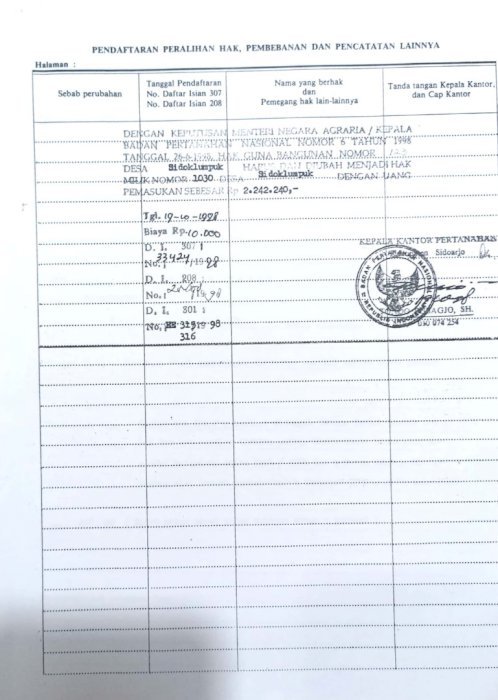 PENDAFTARAN PERALIHAN HAK, PEMBEBANAN DAN PENCATATAN LAINNYA
Halaman :
Sebab perubahan
Tanggal Pendaftaran
No. Daftar Isian 307
No. Daftar Isian 208
Nama yang berhak
dan
Pemegang hak lain-lainnya
Tanda tangan Kepala Kantor,
dan Cap Kantor
DENGAN KEPUTUSAN MENTERI NEGARA AGRARIA / KEPALA
BADAN PERTANAHAN NASIONAL NOMOR 6 TAHUN 1998
TANGGAL 26-6-1998, HAK GUNA BANGUNAN NOMOR
DESA Sidoklumpuk HAPUS DAN DIUBAH MENJADI HAK
MILIK NOMOR 1030 DESA Sidoklumpuk DENGAN UANG
PEMASUKAN SEBESAR Rp 2.242.240,-
Tgl. 19-10-1998
Biaya Rp. 10.000
D. I. 307 :
No. : 33424/1998
D. I. 208 :
No. : /1998
D. I. 301 :
No. 32919 98
316
KEPALA KANTOR PERTANAHAN
Sidoarjo
BADAN PERTANAHAN NASIONAL
REPUBLIK INDONESIA
SH.
010 074 254